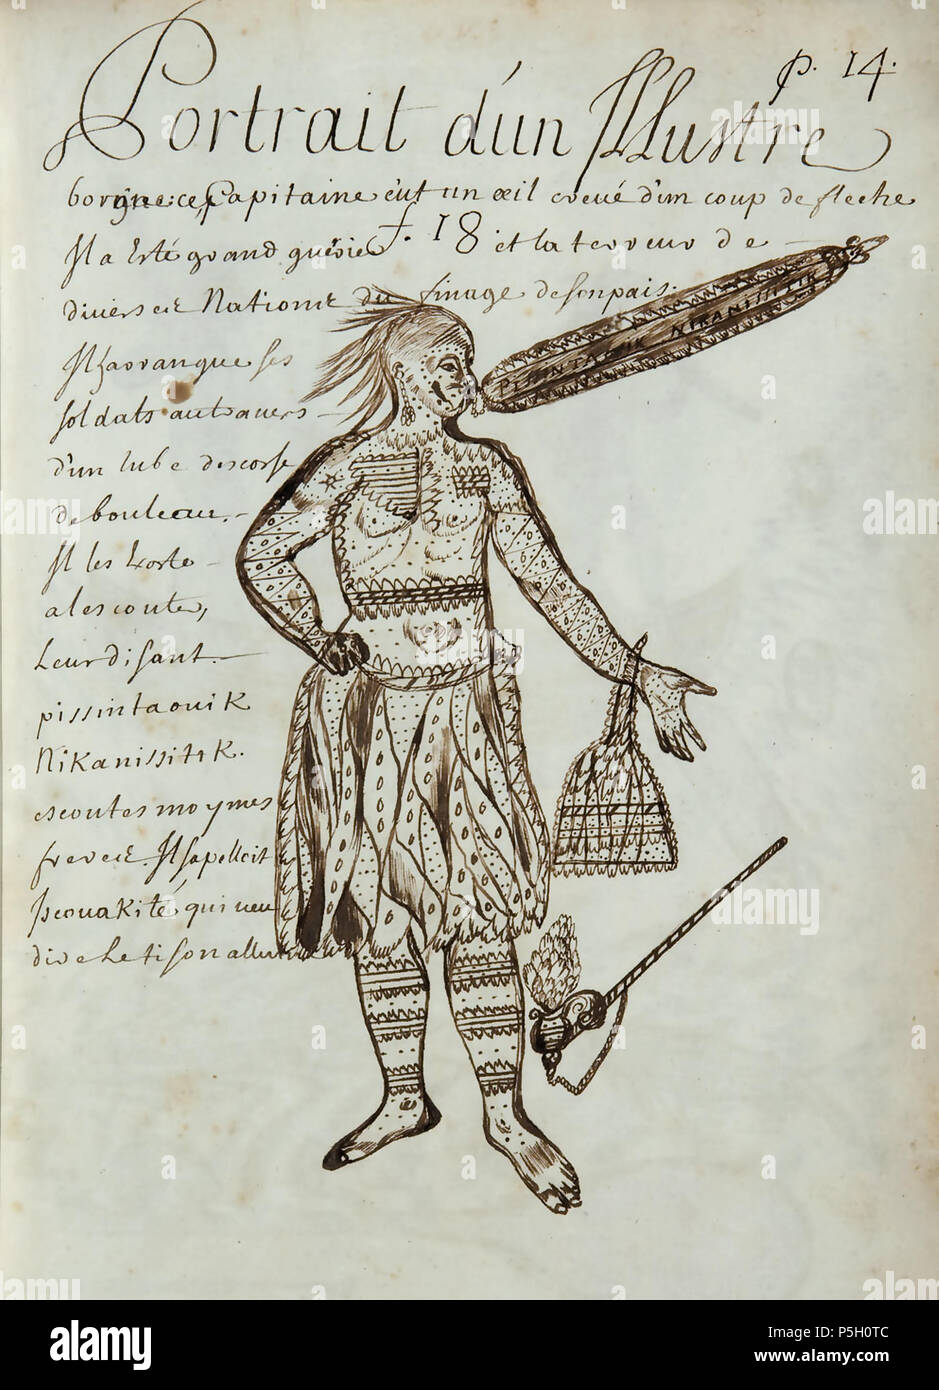 p. 14.
Portrait d'un Illustre
borgne ce Capitaine eut un œil crevé d'un coup de fleche
Il a Esté grand guérié f. 18 et la terreur de
diverses Nations du finage de son païs.
PISSINTAOUIK NIKANISSITIK
Il harrangue ses
soldats autravers
d'un tube descorse
de bouleau.
Il les Exorte
alescouter,
Leur disant
pissintaouik
Nikanissitik.
escoutes moy mes
freres Il sapelloit
Iscouakité qui veu
dire Le tison allumé
alamy
Image ID: P5H0TC
www.alamy.com